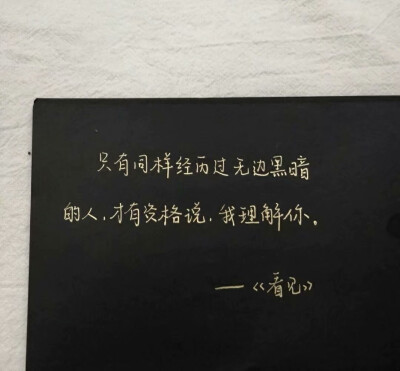 只有同样经历过无边黑暗
的人，才有资格说，我理解你。
——《看见》